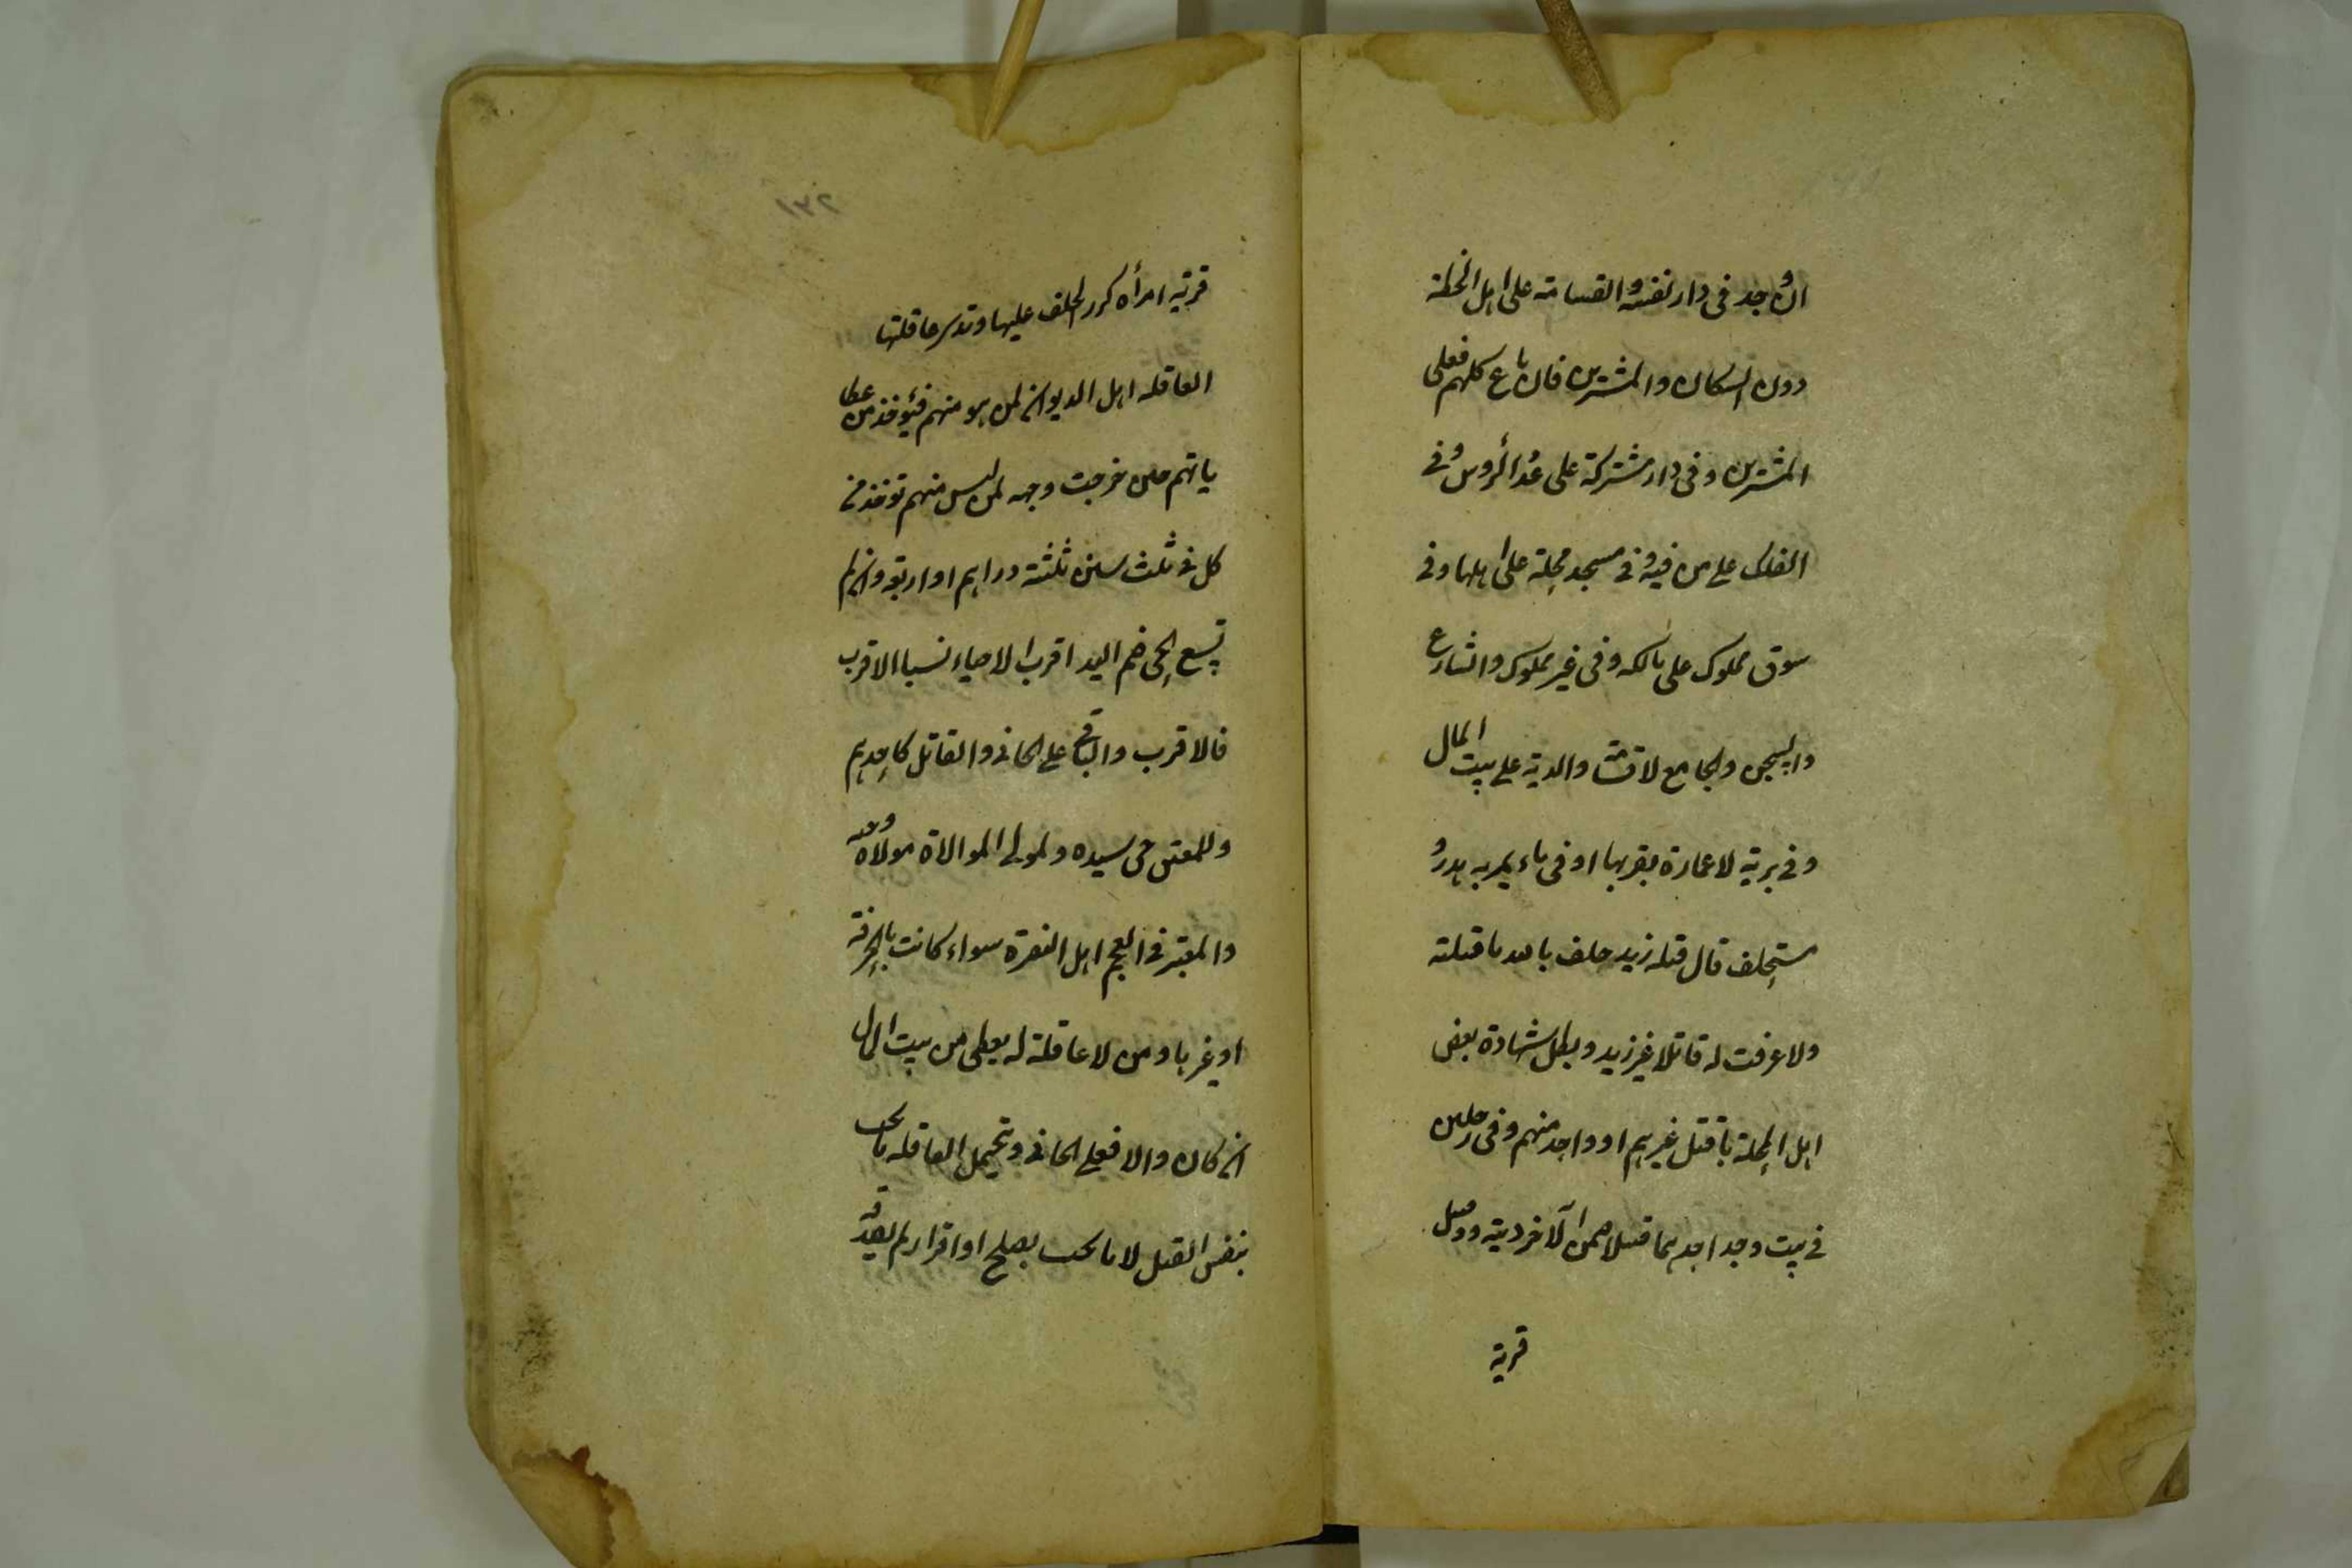 ان وجد فى دار نفسه والقسامة على اهل الخطة
دون السكان والمشترين فان باع كلهم فعلى
المشترين وفى دار مشتركة على عدد الرؤس وفى
الفلك على من فيه وفى مسجد محلة على اهلها وفى
سوق مملوك على مالكه وفى غير مملوك والشارع
والسجن والجامع لا قسامة والدية على بيت المال
وفى برية لا عمارة بقربها او فى ماء يمر به هدر و
مستحلف قال قتله زيد حلف بالله ما قتلته
ولا عرفت له قاتلا غير زيد وبطل شهادة بعض
اهل المحلة بقتل غيرهم او واحد منهم وفى رجلين
فى بيت وجد احدهما قتيلا ضمن الآخر ديته وقتيل
قرية
١٣٢
قرية امرأة كرر الحلف عليها وتدى عاقلتها
العاقله اهل الديوان لمن هو منهم فيؤخذ من عطا
ياهم حين خرجت وحيه لمن ليس منهم تؤخذ من
كل فى ثلث سنين ثلثة دراهم او اربعة وان لم
يتسع الحى ضم اليه اقرب الاحياء نسبا الاقرب
فالاقرب والباقى على الجانى والقاتل كاحدهم
وللمعتق حى سيده ولمولى الموالاة مولاه وحيه
والمعتبر فى العجم اهل النصرة سواء كانت بالحرفة
او غيرها ومن لا عاقلة له يعطى من بيت المال
ان كان والا فعلى الجانى وتحمل العاقله ما يجب
بنفس القتل لا ما يجب بصلح او اقرار لم يصدقه